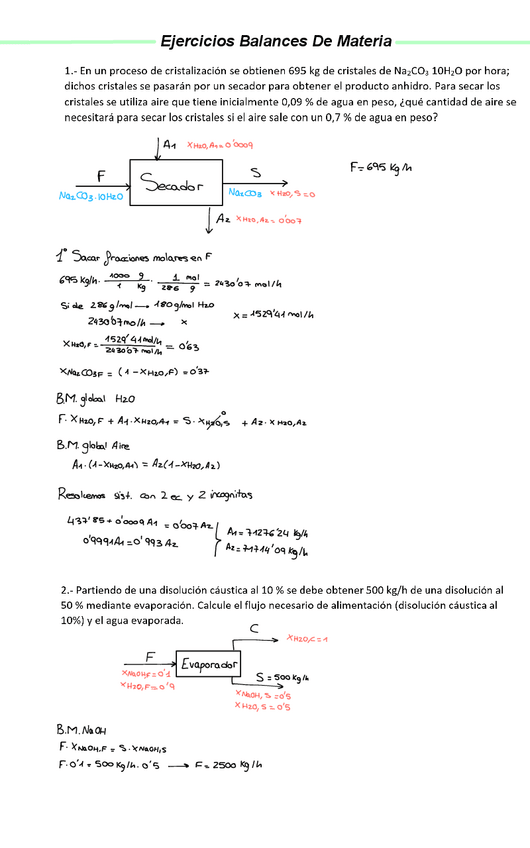 Ejercicios Balances De Materia
1.- En un proceso de cristalización se obtienen 695 kg de cristales de Na₂CO₃ 10H₂O por hora;
dichos cristales se pasarán por un secador para obtener el producto anhidro. Para secar los
cristales se utiliza aire que tiene inicialmente 0,09 % de agua en peso, ¿qué cantidad de aire se
necesitará para secar los cristales si el aire sale con un 0,7 % de agua en peso?
A1 XH2O,A1=0'0009
F Secador S F=695 Kg/h
Na2CO3·10H2O Na2CO3 XH2O,S=0
A2 XH2O,A2=0'007
1º Sacar fracciones molares en F
695 Kg/h · 1000 g / 1 Kg · 1 mol / 286 g = 2430'07 mol/h
Si de 286 g/mol → 180 g/mol H2O
2430'07 mo/h → x x = 1529'41 mol/h
XH2O,F = 1529'41 mol/h / 2430'07 mol/h = 0'63
XNa2CO3F = (1-XH2O,F) = 0'37
B.M. global H2O
F·XH2O,F + A1·XH2O,A1 = S·XH2O,S 0 + A2·XH2O,A2
B.M. global Aire
A1·(1-XH2O,A1) = A2(1-XH2O,A2)
Resolvemos sist. con 2 ec y 2 incognitas
437'85 + 0'0009 A1 = 0'007 A2 A1 = 71276'24 Kg/h
0'9991A1 = 0'993 A2 A2 = 71714'09 Kg/h
2.- Partiendo de una disolución cáustica al 10 % se debe obtener 500 kg/h de una disolución al
50 % mediante evaporación. Calcule el flujo necesario de alimentación (disolución cáustica al
10%) y el agua evaporada.
C XH2O,C=1
F Evaporador
XNaOH,F=0'1 S = 500 Kg/h
XH2O,F=0'9 XNaOH,S=0'5
XH2O,S=0'5
B.M. NaOH
F·XNaOH,F = S·XNaOH,S
F·0'1 = 500 Kg/h·0'5 → F = 2500 Kg/h